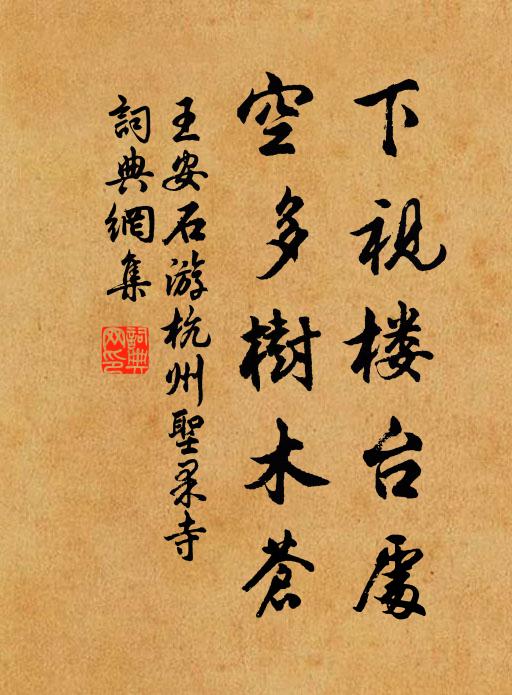 下視楼台處
空多樹木蒼
王安石游杭州聖果寺
詞典網集
詞典網印